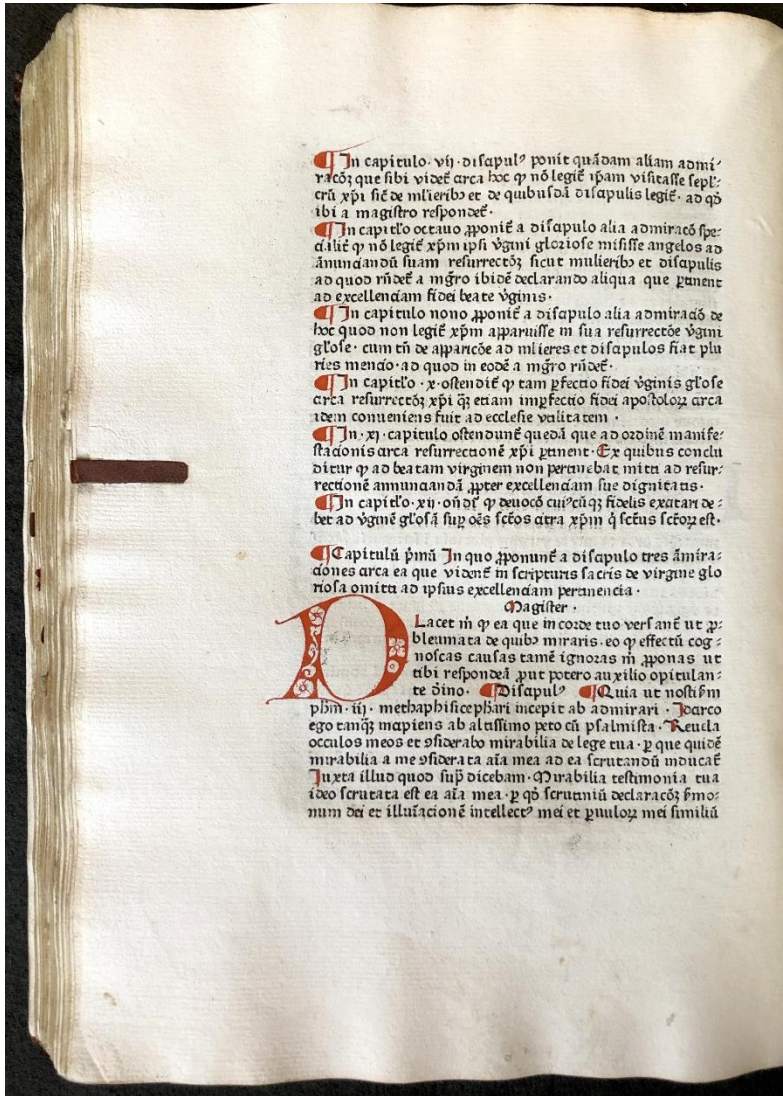 ¶In capitulo· vij· discipulꝰ ponit quādam aliam admi⸗
racōꝫ que sibi videt̄ circa hoc ꝙ nō legit̄ ip̄am visitasse sepl̄⸗
crū xp̄i sic̄ de ml̄ieribꝰ et de quibusdā discipulis legit̄· ad qd̄
ibi a magistro respondet̄·
¶In capitl̄o octauo ꝓponit̄ a discipulo alia admiracō spe⸗
cialit̄ ꝙ nō legit̄ xp̄m ipsi v̄gini gloriose misisse angelos ad
ānunciandū suam resurrectōꝫ sicut mulieribꝰ et discipulis
ad quod rn̄det̄ a mgr̄o ibidē declarando aliqua que ꝑtinent
ad excellenciam fidei beate v̄ginis·
¶In capitulo nono ꝓponit̄ a discipulo alia admiraciō de
hoc quod non legit̄ xp̄m apparuisse in sua resurrectōe v̄gini
gl̄ose· cum tn̄ de apparicōe ad ml̄ieres et discipulos fiat plu
ries mencio· ad quod in eodē a mgr̄o rn̄det̄·
¶In capitl̄o · x· ostendit̄ ꝙ tam ꝑfectio fidei v̄ginis gl̄ose
circa resurrectōꝫ xp̄i qꝫ̄ etiam imꝑfectio fidei apostoloꝝ circa
idem conueniens fuit ad ecclesie vtilitatem ·
¶In· xj· capitulo ostendunt̄ quedā que ad ordinē manife⸗
stacionis circa resurrectionē xp̄i ꝑtinent· Ex quibus conclu
ditur ꝙ ad beatam virginem non pertinebat mitti ad resur⸗
rectionē annunciandā ꝓpter excellenciam sue dignitatis·
¶In capitl̄o· xij· on̄dit̄ ꝙ deuocō cuiꝰcūqꝫ fidelis excitari de⸗
bet ad v̄ginē gl̄osā suꝑ oēs sc̄tos citra xp̄m q̄ sc̄tus sc̄toꝝ est·
¶Capitulū p̄mū In quo ꝓponunt̄ a discipulo tres āmira⸗
ciones circa ea que vident̄ in scripturis sacris de virgine glo
riosa omitti ad ipsius excellenciam pertinencia ·
Magister ·
PLacet m̄ ꝙ ea que in corde tuo versant̄ ut ꝓ⸗
bleumata de quibꝰ miraris· eo ꝙ effectū cog⸗
noscas causas tamē ignoras m̄ ꝓponas ut
tibi respondeā ꝓut potero auxilio opitulan⸗
te d̄ino· ¶Discipulꝰ ¶Quia ut nosti p̄m
ph̄m· iij· methaphisice ph̄ari incepit ab admirari · Idcirco
ego tanqꝫ̄ incipiens ab altissimo peto cū psalmista· Reuela
occulos meos et ꝯsiderabo mirabilia de lege tua· ꝑ que quidē
mirabilia a me ꝯsiderata aīa mea ad ea scrutandū inducat̄
Iuxta illud quod sup̄ dicebam· Mirabilia testimonia tua
ideo scrutata est ea aīa mea· ꝑ qd̄ scrutiniū declaracōꝫ s̄mo⸗
num dei et illuīacionē intellectꝰ mei et ꝑuuloꝝ mei similiū